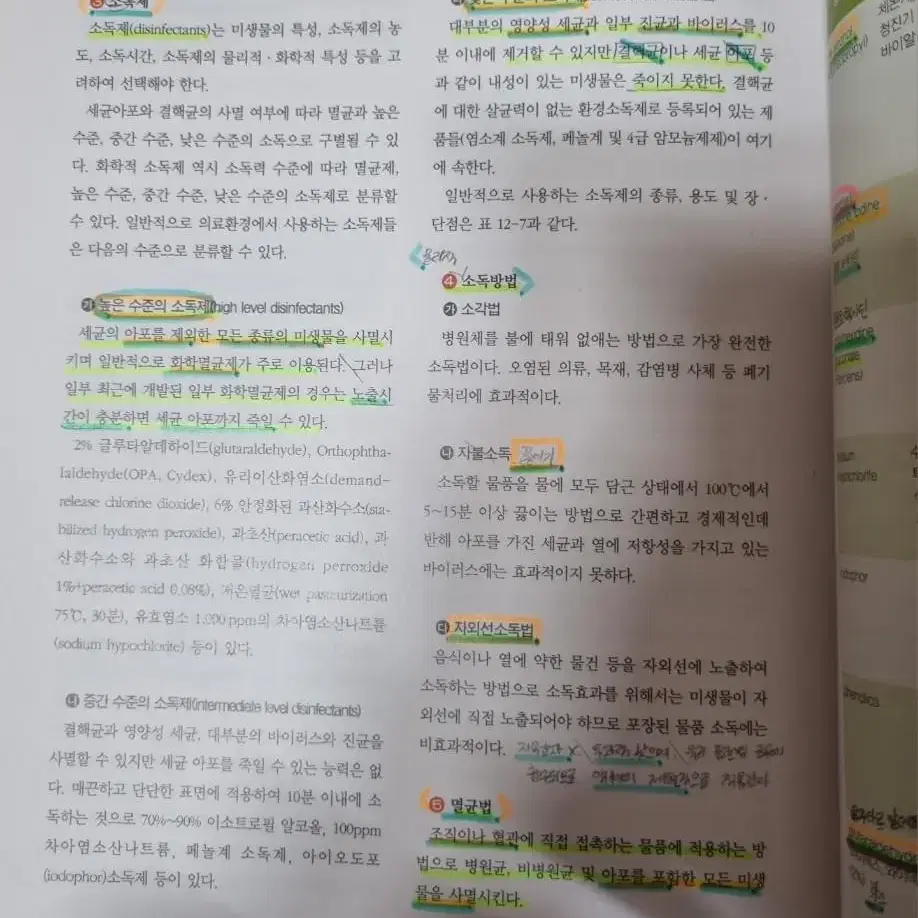 ❸ 소독제
소독제(disinfectants)는 미생물의 특성, 소독제의 농
도, 소독시간, 소독제의 물리적·화학적 특성 등을 고
려하여 선택해야 한다.
세균아포와 결핵균의 사멸 여부에 따라 멸균과 높은
수준, 중간 수준, 낮은 수준의 소독으로 구별될 수 있
다. 화학적 소독제 역시 소독력 수준에 따라 멸균제,
높은 수준, 중간 수준, 낮은 수준의 소독제로 분류할
수 있다. 일반적으로 의료환경에서 사용하는 소독제들
은 다음의 수준으로 분류할 수 있다.
㉮ 높은 수준의 소독제(high level disinfectants)
세균의 아포를 제외한 모든 종류의 미생물을 사멸시
키며 일반적으로 화학멸균제가 주로 이용된다. 그러나
일부 최근에 개발된 일부 화학멸균제의 경우는 노출시
간이 충분하면 세균 아포까지 죽일 수 있다.
2% 글루타알데하이드(glutaraldehyde), Orthophtha-
laldehyde(OPA, Cydex), 유리이산화염소(demand-
release chlorine dioxide), 6% 안정화된 과산화수소(sta-
bilized hydrogen peroxide), 과초산(peracetic acid), 과
산화수소와 과초산 화합물(hydrogen perroxide
1%+peracetic acid 0.08%), 저온멸균(wet pasteurization
75℃, 30분), 유효염소 1,000ppm의 차아염소산나트륨
(sodium hypochlorite) 등이 있다.
㉯ 중간 수준의 소독제(intermediate level disinfectants)
결핵균과 영양성 세균, 대부분의 바이러스와 진균을
사멸할 수 있지만 세균 아포를 죽일 수 있는 능력은 없
다. 매끈하고 단단한 표면에 적용하여 10분 이내에 소
독하는 것으로 70%~90% 이소트로필 알코올, 100ppm
차아염소산나트륨, 페놀계 소독제, 아이오도포
(iodophor)소독제 등이 있다.
대부분의 영양성 세균과 일부 진균과 바이러스를 10
분 이내에 제거할 수 있지만 결핵균이나 세균 아포 등
과 같이 내성이 있는 미생물은 죽이지 못한다. 결핵균
에 대한 살균력이 없는 환경소독제로 등록되어 있는 제
품들(염소계 소독제, 페놀계 및 4급 암모늄제제)이 여기
에 속한다.
일반적으로 사용하는 소독제의 종류, 용도 및 장·
단점은 표 12-7과 같다.
물리적
❹ 소독방법
㉮ 소각법
병원체를 불에 태워 없애는 방법으로 가장 완전한
소독법이다. 오염된 의류, 목재, 감염병 사체 등 폐기
물처리에 효과적이다.
㉯ 자불소독 끓이기
소독할 물품을 물에 모두 담근 상태에서 100℃에서
5~15분 이상 끓이는 방법으로 간편하고 경제적인데
반해 아포를 가진 세균과 열에 저항성을 가지고 있는
바이러스에는 효과적이지 못하다.
㉰ 자외선소독법
음식이나 열에 약한 물건 등을 자외선에 노출하여
소독하는 방법으로 소독효과를 위해서는 미생물이 자
외선에 직접 노출되어야 하므로 포장된 물품 소독에는
비효과적이다.
❺ 멸균법
조직이나 혈관에 직접 접촉하는 물품에 적용하는 방
법으로 병원균, 비병원균 및 아포를 포함한 모든 미생
물을 사멸시킨다.
정진기
바이알